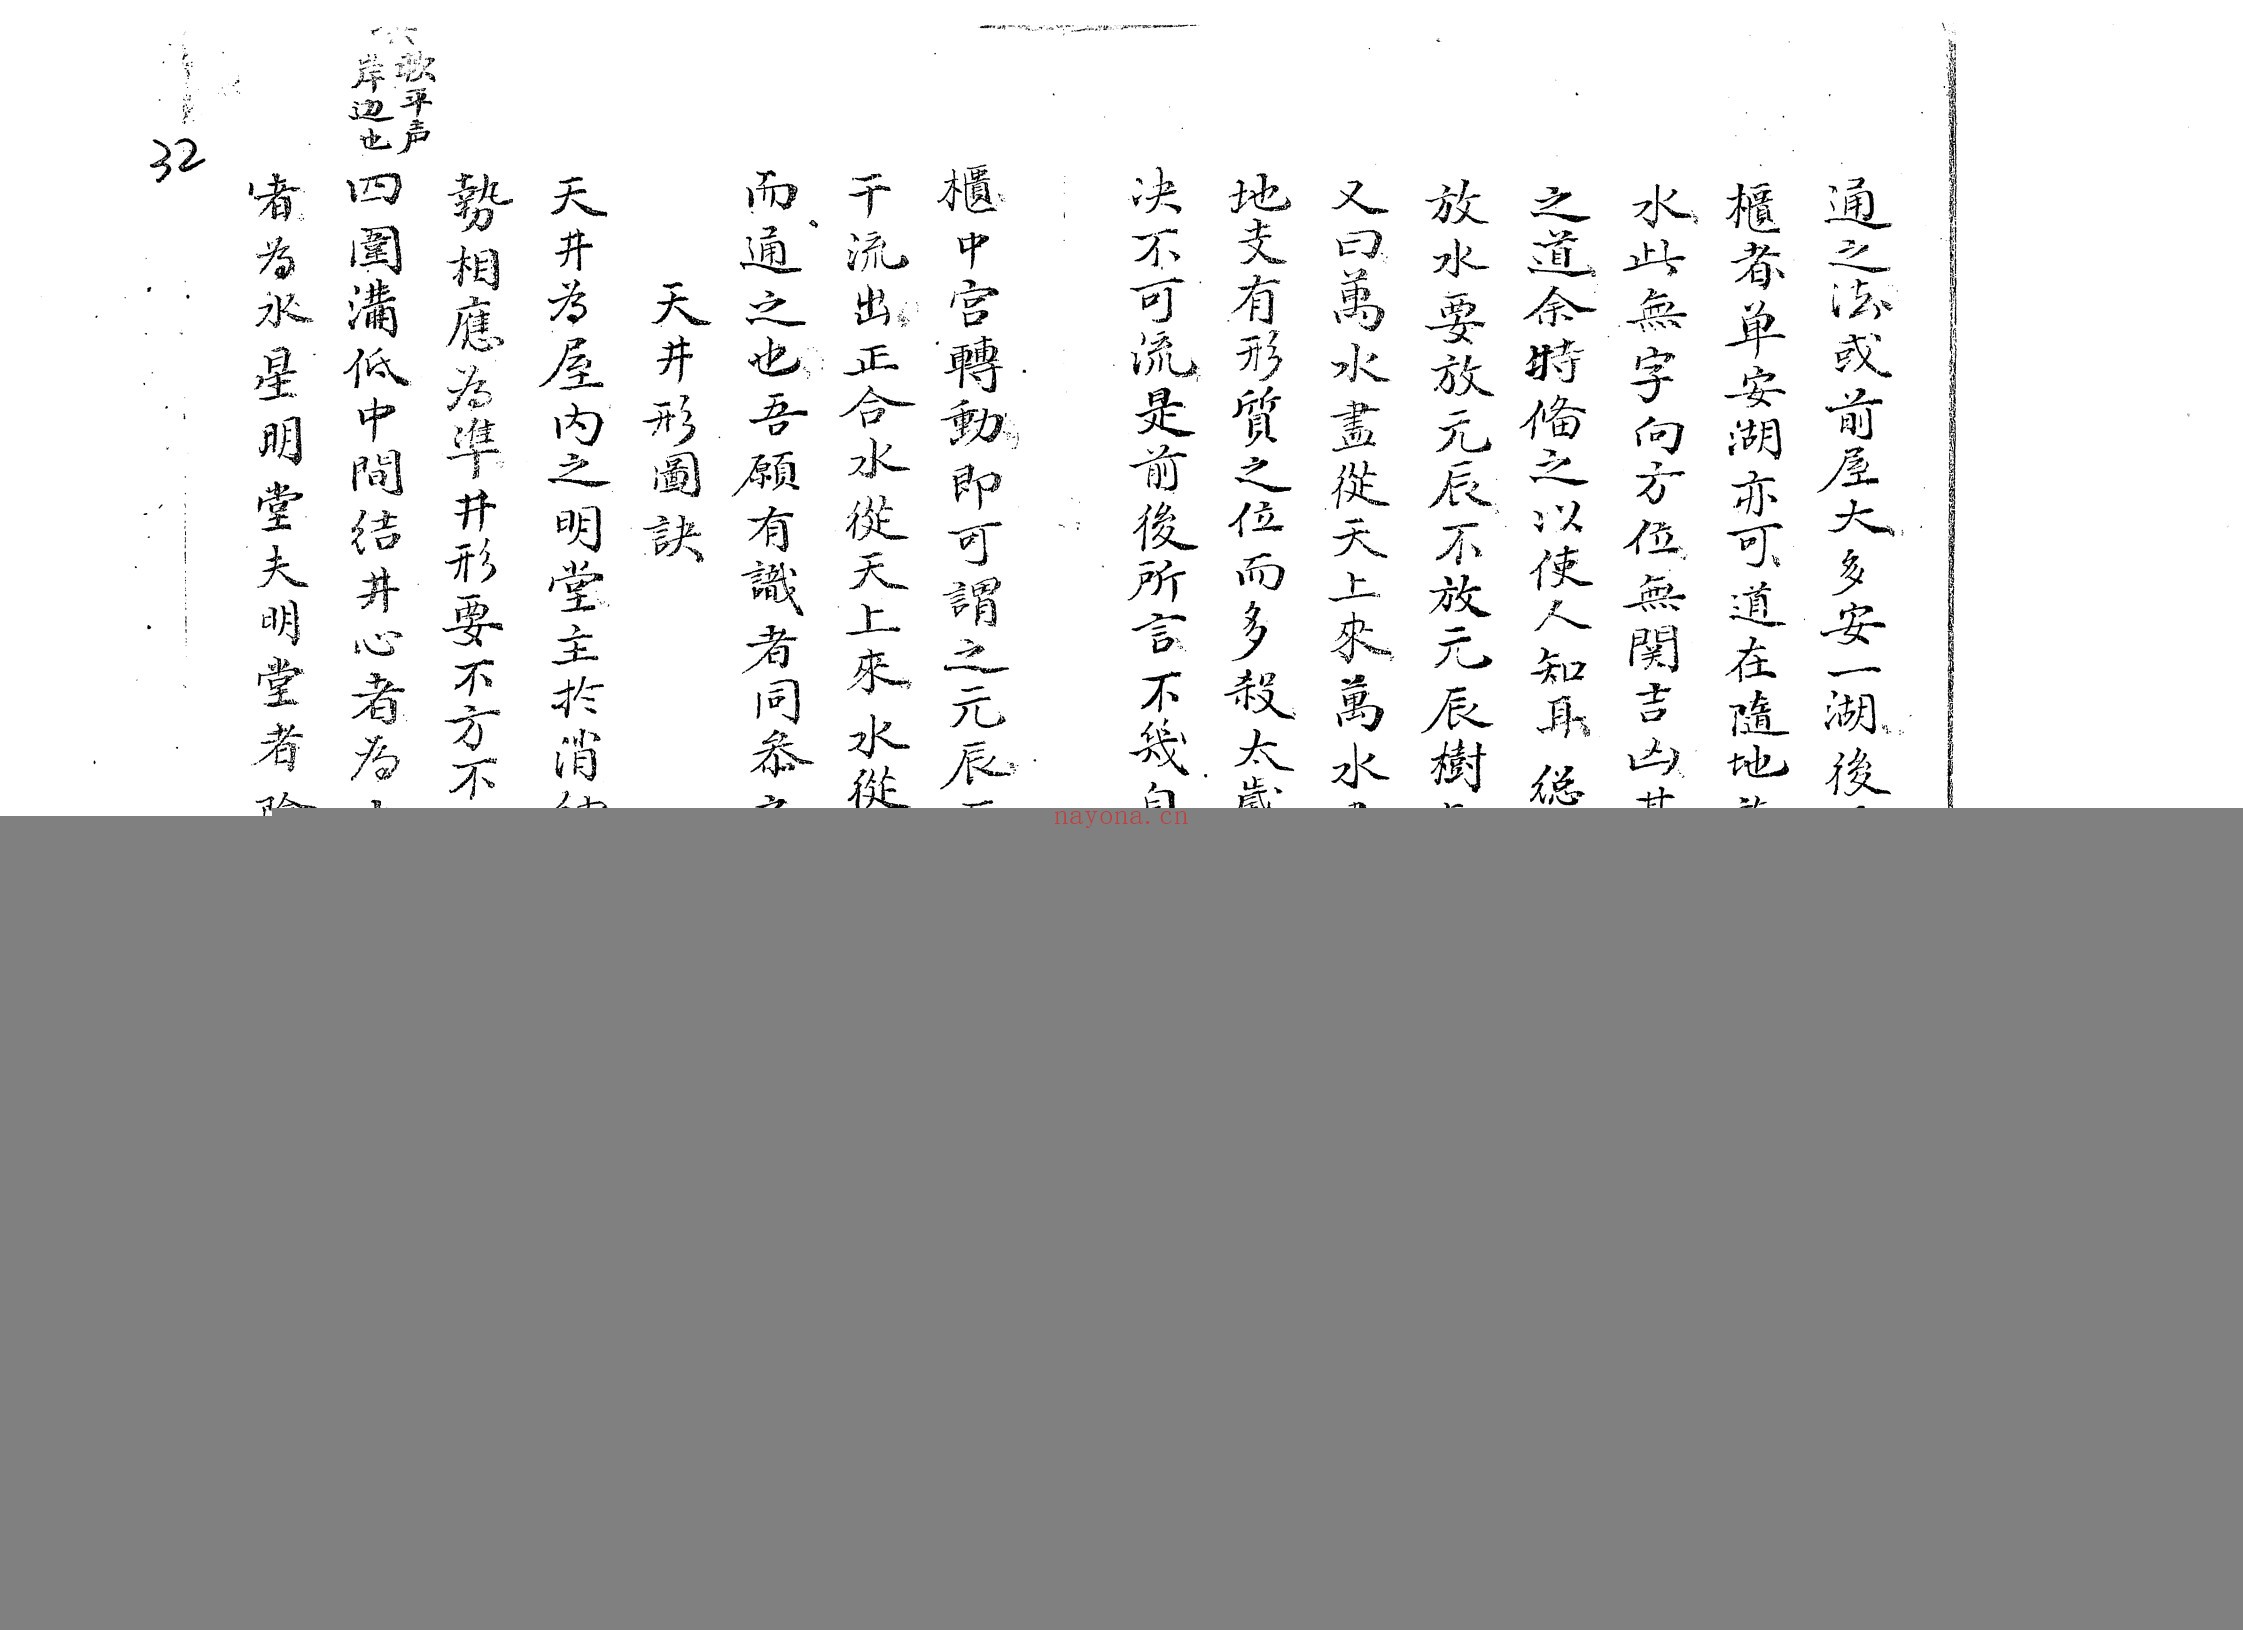 通之法或前屋大多安一湖後
櫃者单安湖亦可道在隨地
水此無字向方位無関吉凶其
之道余時偹之以使人知耳総
放水要放元辰不放元辰樹
又曰萬水盡從天上來萬水
地支有形質之位而多殺太歲
决不可流是前後所言不幾自
櫃中宫轉動即可謂之元辰
干流出正合水從天上來水從
而通之也吾願有識者同叅
天井形圖訣
天井為屋内之明堂主於消
勢相應為凖井形要不方不
歌平声
岸边也
四圍溝低中間結井心者為
者為水星明堂夫明堂者
32
nayona.cn